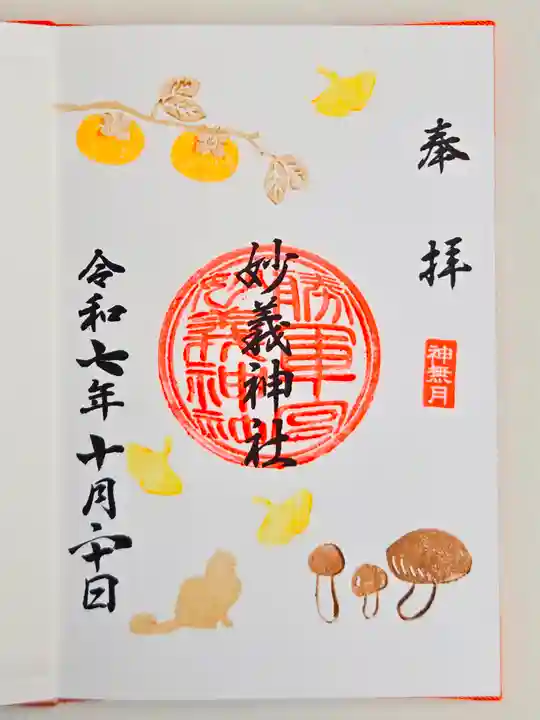 奉拝
神無月
妙義神社
令和七年十月二十日